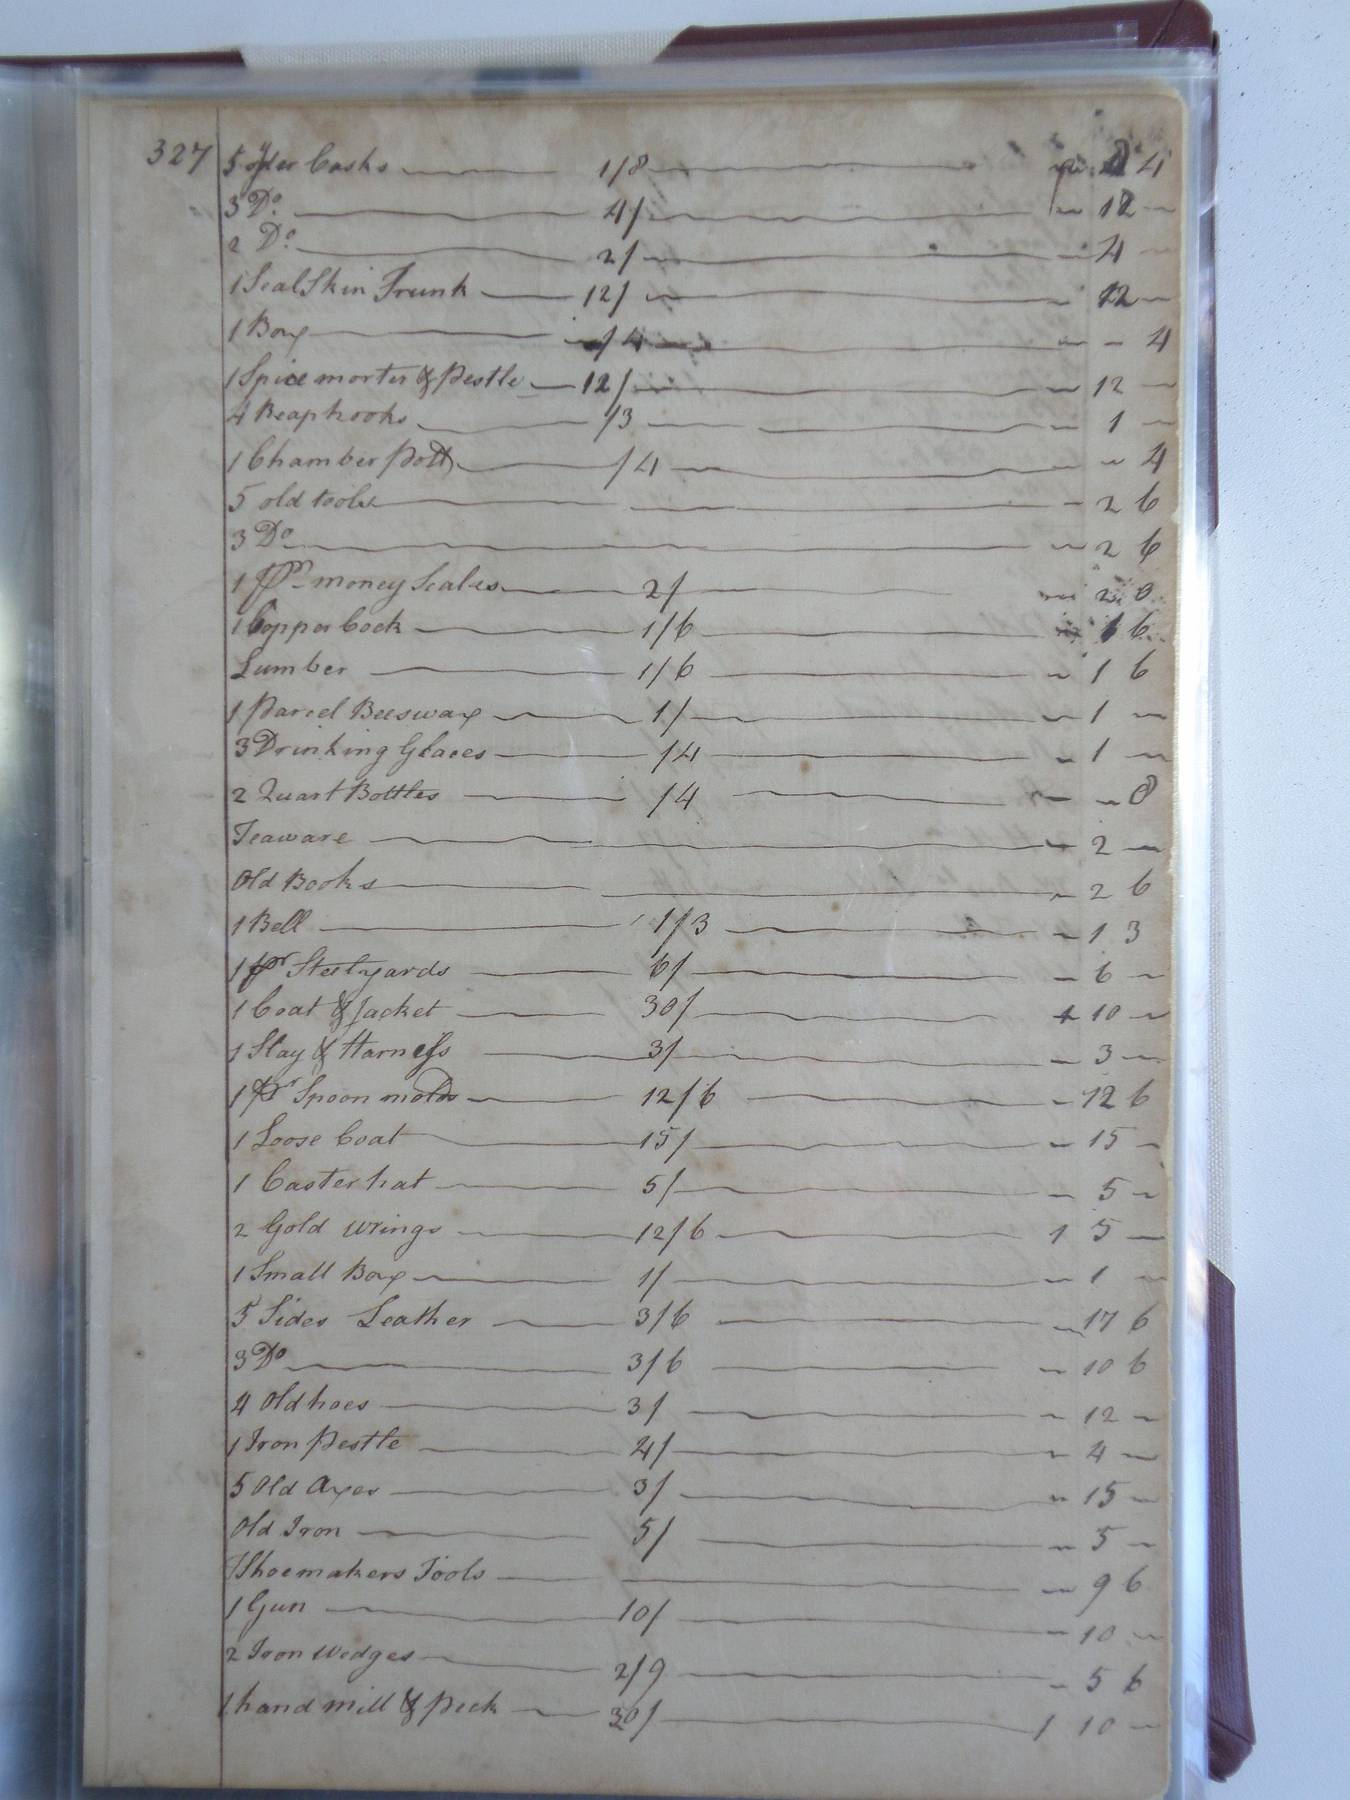 327 5 Cyder Casks — 1/8 — " 8 4
3 Do — 4/ — " 12 "
2 Do — 2/ — " 4 "
1 Seal Skin Trunk — 12/ — " 12 "
1 Box — /4 — " " 4
1 Spice morter & Pestle — 12/ — " 12 "
4 Reaphooks — /3 — " 1 "
1 Chamber Pott — /4 — " " 4
5 old tools — " 2 6
3 Do — " 2 6
1 pr money Scales — 2/ — " 2 0
1 Copper Cock — 1/6 — " 1 6
Lumber — 1/6 — " 1 6
1 Parcel Beeswax — 1/ — " 1 "
3 Drinking Glaces — /4 — " 1 "
2 Quart Bottles — /4 — " " 8
Teaware — " 2 "
Old Books — " 2 6
1 Bell — 1/3 — " 1 3
1 pr Steelyards — 6/ — " 6 "
1 Coat & Jacket — 30/ — 1 10 "
1 Slay & Harness — 3/ — " 3 "
1 pr Spoon molds — 12/6 — " 12 6
1 Loose Coat — 15/ — " 15 "
1 Caster hat — 5/ — " 5 "
2 Gold wrings — 12/6 — 1 5 "
1 Small Box — 1/ — " 1 "
5 Sides Leather — 3/6 — " 17 6
3 Do — 3/6 — " 10 6
4 Old hoes — 3/ — " 12 "
1 Iron Pestle — 4/ — " 4 "
5 Old Axes — 3/ — " 15 "
Old Iron — 5/ — " 5 "
Shoemakers Tools — " 9 6
1 Gun — 10/ — " 10 "
2 Iron Wedges — 2/9 — " 5 6
1 hand mill & Peck — 30/ — 1 10 "